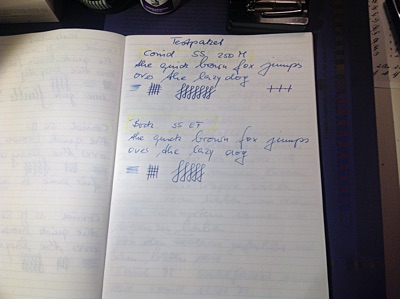 Testpaket
Conid 55 250 M
the quick brown fox jumps
over the lazy dog
55 ET
the quick brown fox jumps
over the lazy dog